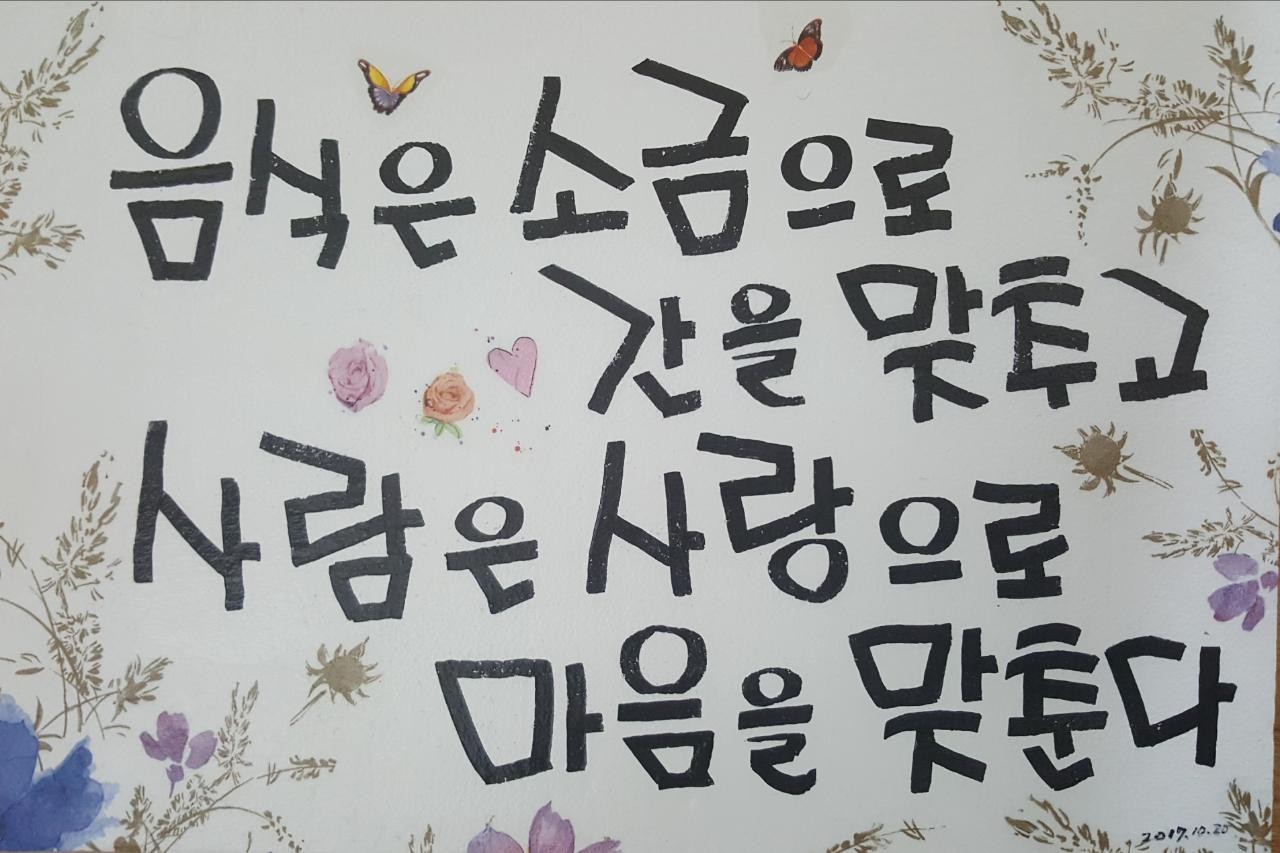 음식은 소금으로
간을 맞추고
사람은 사랑으로
마음을 맞춘다
2017.10.20